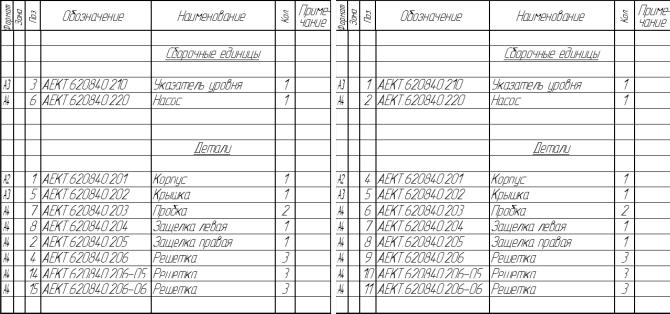 Формат Зона Поз. Обозначение Наименование Кол. Приме-чание
Сборочные единицы
А3 3 АЕКТ.620840.210 Указатель уровня 1
А4 6 АЕКТ.620840.220 Насос 1
Детали
А2 1 АЕКТ.620840.201 Корпус 1
А3 5 АЕКТ.620840.202 Крышка 1
А4 7 АЕКТ.620840.203 Пробка 2
А4 8 АЕКТ.620840.204 Защелка левая 1
А4 2 АЕКТ.620840.205 Защелка правая 1
А4 4 АЕКТ.620840.206 Решетка 3
А4 14 АЕКТ.620840.206-05 Решетка 3
А4 15 АЕКТ.620840.206-06 Решетка 3
Формат Зона Поз. Обозначение Наименование Кол. Приме-чание
Сборочные единицы
А3 1 АЕКТ.620840.210 Указатель уровня 1
А4 2 АЕКТ.620840.220 Насос 1
Детали
А2 4 АЕКТ.620840.201 Корпус 1
А3 5 АЕКТ.620840.202 Крышка 1
А4 6 АЕКТ.620840.203 Пробка 2
А4 7 АЕКТ.620840.204 Защелка левая 1
А4 8 АЕКТ.620840.205 Защелка правая 1
А4 9 АЕКТ.620840.206 Решетка 3
А4 10 АЕКТ.620840.206-05 Решетка 3
А4 11 АЕКТ.620840.206-06 Решетка 3